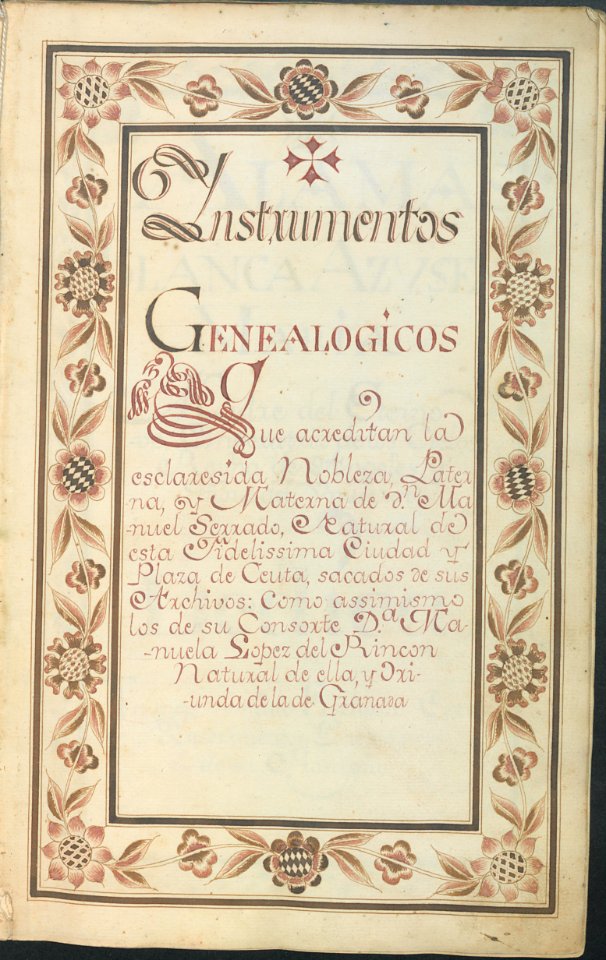 Instrumentos
GENEALOGICOS
Que acreditan la
esclaresida Nobleza, Pater
na, y Materna de d.ⁿ Ma
-nuel Serrado, Natural de
esta Fidelissima Ciudad y
Plaza de Ceuta, sacados de sus
Archivos: Como assimismo
los de su Consorte D.ª Ma-
-nuela Lopez del Rincon
Natural de ella, y Ori-
-unda de la de Granada